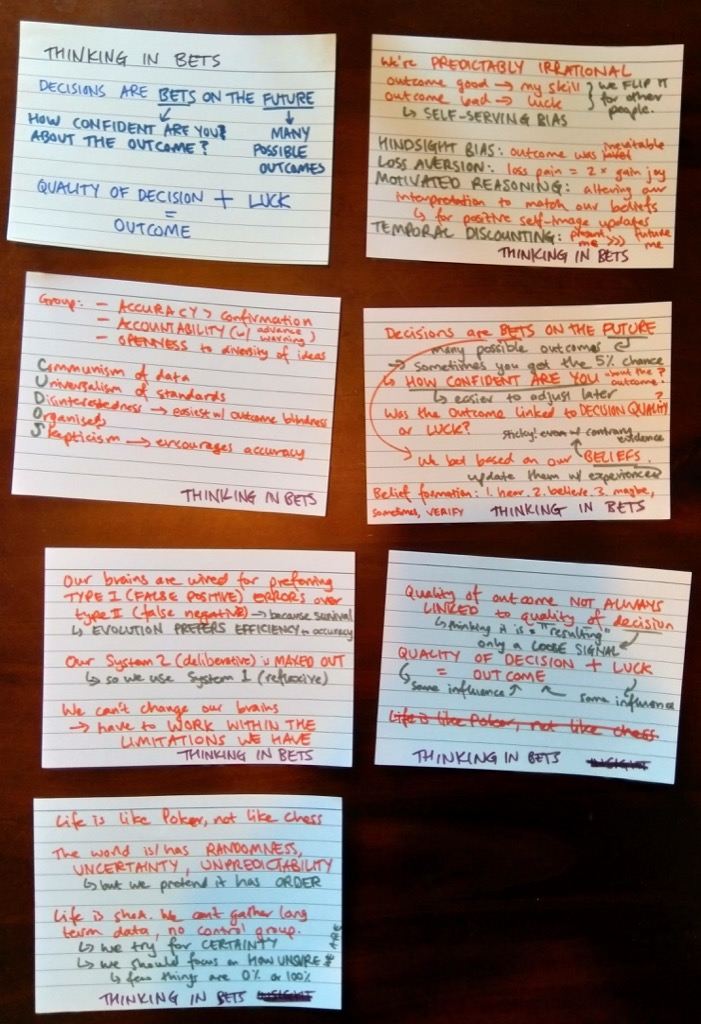 THINKING IN BETS
DECISIONS ARE BETS ON THE FUTURE
HOW CONFIDENT ARE YOU?
ABOUT THE OUTCOME?
MANY
POSSIBLE
OUTCOMES
QUALITY OF DECISION + LUCK
=
OUTCOME
We're PREDICTABLY IRRATIONAL
outcome good → my skill } we FLIP IT
outcome bad → luck } for other
people.
↳ SELF-SERVING BIAS
HINDSIGHT BIAS: outcome was inevitable
LOSS AVERSION: loss pain = 2 × gain joy
MOTIVATED REASONING: altering our
interpretation to match our beliefs
↳ for positive self-image updates
TEMPORAL DISCOUNTING: present me >>> future me
THINKING IN BETS
Group: - ACCURACY > confirmation
- ACCOUNTABILITY (w/ advance warning)
- OPENNESS to diversity of ideas
Communism of data
Universalism of standards
Disinterestedness → easiest w/ outcome blindness
Organised
Skepticism → encourages accuracy
THINKING IN BETS
Decisions are BETS ON THE FUTURE
many possible outcomes
→ sometimes you get the 5% chance
↳ HOW CONFIDENT ARE YOU about the outcome?
↳ easier to adjust later
Was the outcome linked to DECISION QUALITY
or LUCK?
sticky! even w/ contrary evidence
We bet based on our BELIEFS.
update them w/ experience?
Belief formation: 1. hear, 2. believe, 3. maybe,
sometimes, VERIFY
THINKING IN BETS
Our brains are wired for preferring
TYPE I (FALSE POSITIVE) ERRORS over
type II (false negative) → because survival
↳ EVOLUTION PREFERS EFFICIENCY to accuracy
Our System 2 (deliberative) is MAXED OUT
↳ so we use System 1 (reflexive)
We can't change our brains
→ have to WORK WITHIN THE
LIMITATIONS WE HAVE
THINKING IN BETS
Quality of outcome NOT ALWAYS
LINKED to quality of decision
↳ thinking it is = "resulting"
only a LOOSE SIGNAL
QUALITY OF DECISION + LUCK
= OUTCOME
↳ some influence ↑ some influence
Life is like Poker, not like chess
THINKING IN BETS INSIGHT
Life is like Poker, not like chess
The world is/has RANDOMNESS,
UNCERTAINTY, UNPREDICTABILITY
↳ but we pretend it has ORDER
Life is short. We can't gather long
term data, no control group.
↳ we try for CERTAINTY
↳ we should focus on HOW UNSURE WE ARE
↳ few things are 0% or 100%
THINKING IN BETS INSIGHT